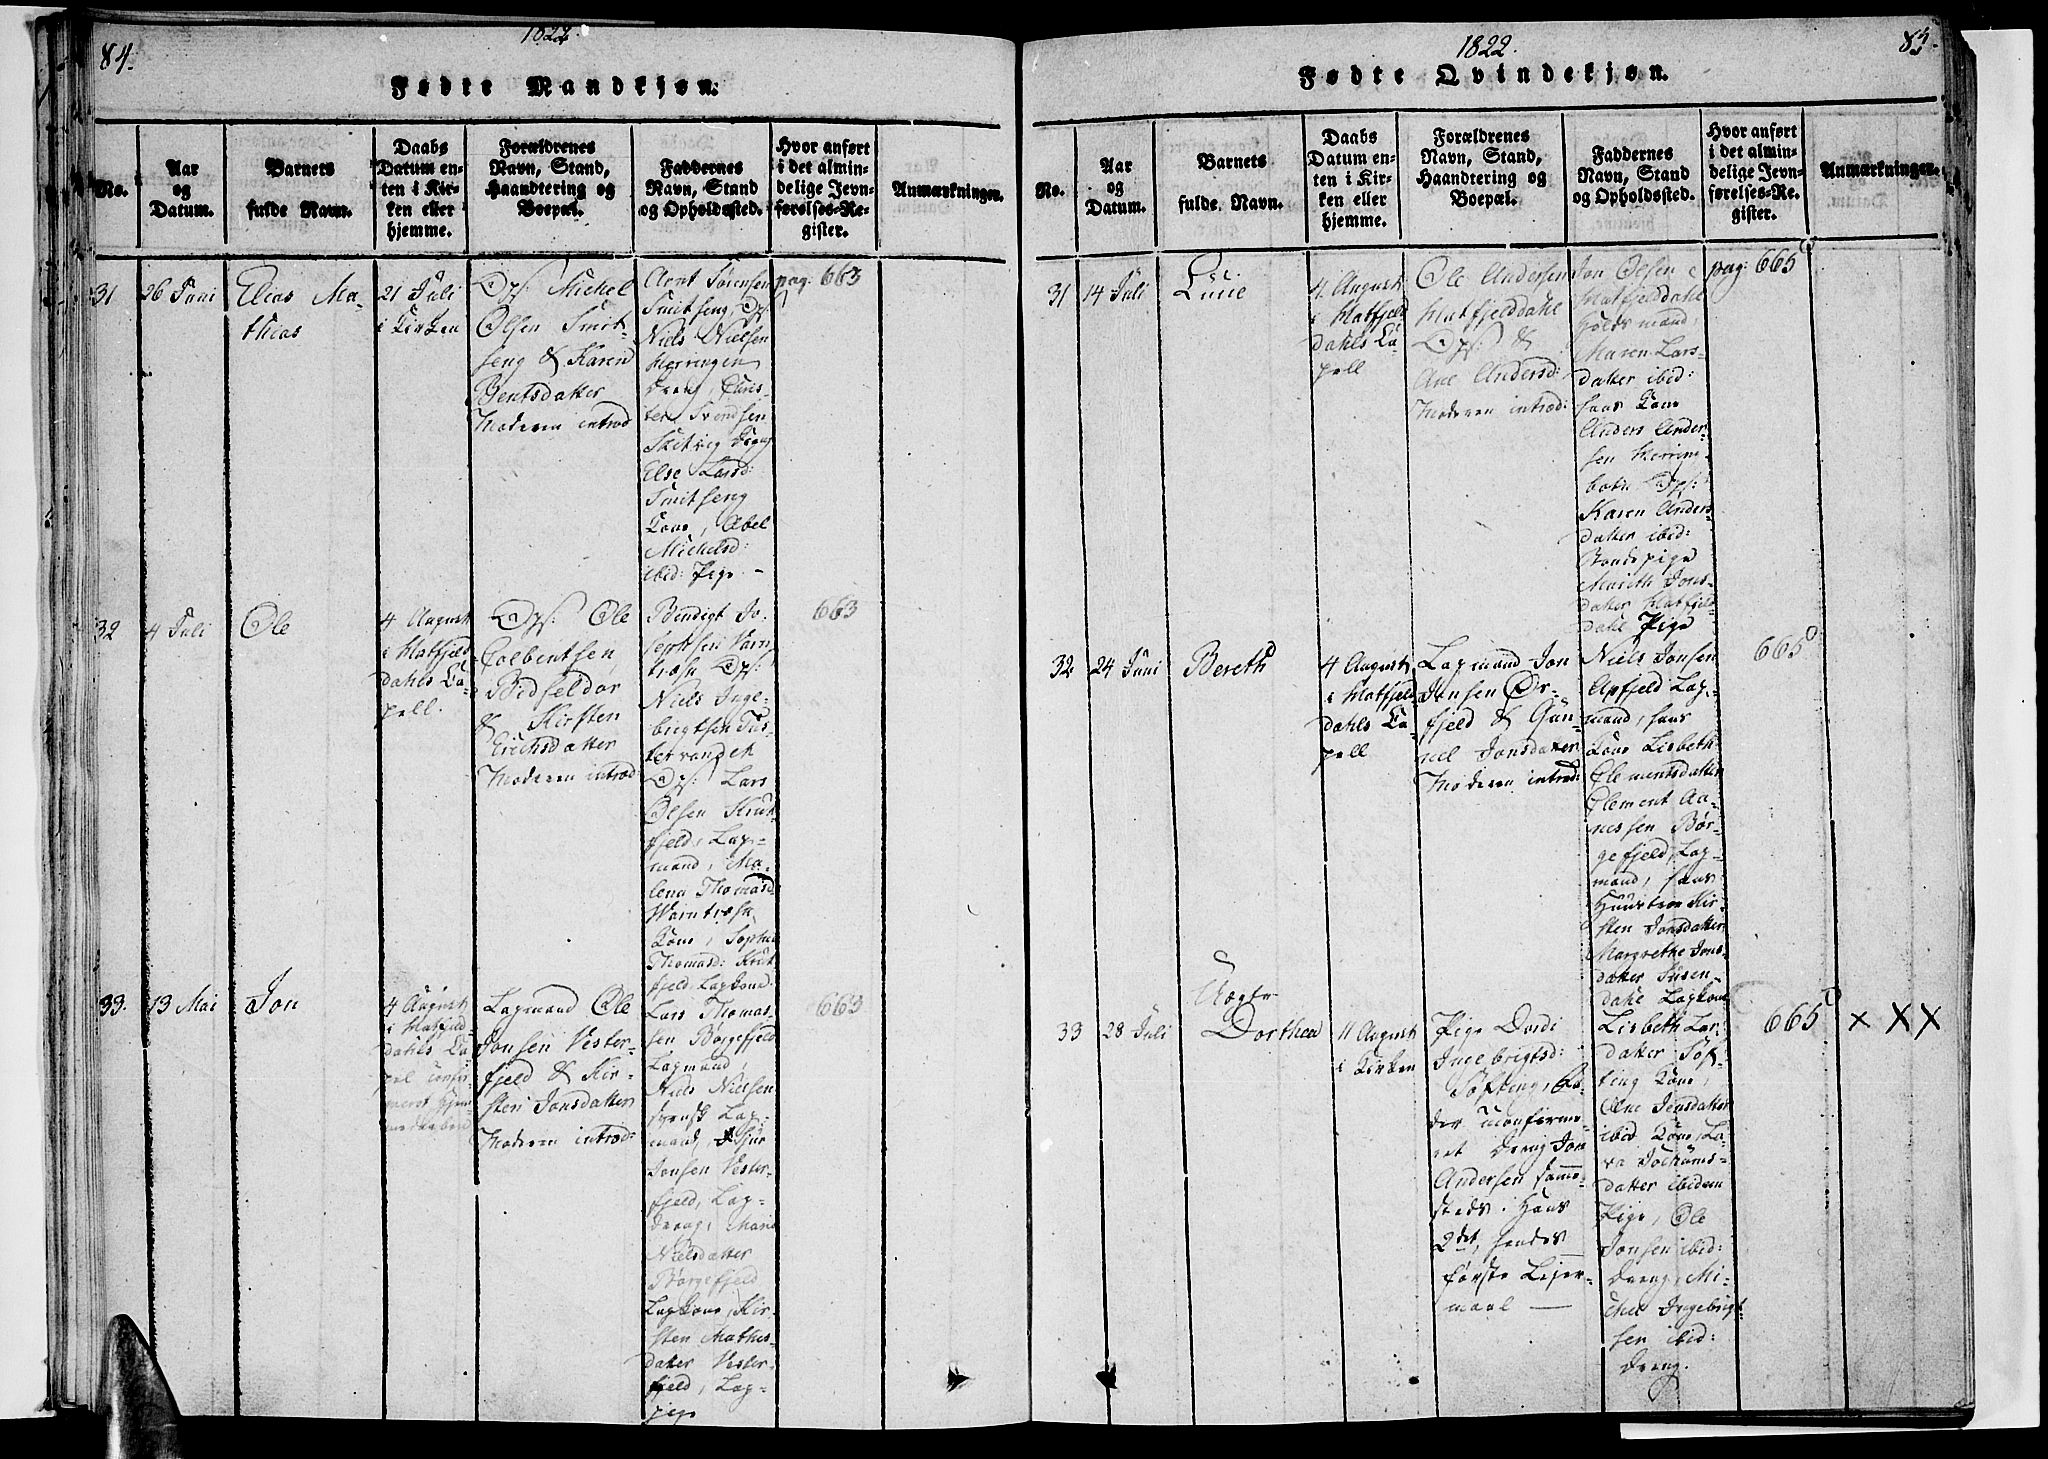 84.
1822.
Fødte Mandkjøn.
No.
Aar
og
Datum.
Barnets
fulde Navn.
Daabs
Datum en-
ten i Kir-
ken eller
hjemme.
Forældrenes
Navn, Stand,
Haandtering og
Boepæl.
Faddernes
Navn, Stand
og Opholdssted.
Hvor anført
i det almin-
delige Jevn-
førelses-Re-
gister.
Anmærkninger.
31
26 Juni
Elias Ma-
thias
21 Juli
i Kirken
Ops: Michel
Olsen Smit-
seng & Karen
Bentsdatter
Moderen introd
Arnt Sørensen
Smitseng, Ops:
Niels Nielsen
Herringen
Dreng, Chris-
ten Svendsen
Dreng
Else Larsd:
Smitseng
Kone, Abel
Michelsd:
ibid: Pige. -
pag: 663
32
4 Juli
Ole
4 August
i Hatfjeld
dahls Ca-
pell.
Ops: Ole
Colbentsen
& Kirsten
Erichsdatter
Moderen introd:
Bendigt Jo-
sephsen
Ops:
Niels Inge-
brigtsen
Ops: Lars
Olsen Krut-
fjeld, Lap-
mand, Ma-
lena Thomasd
Kone, Sophia
Thomasd: Krut
fjeld, Lapkone.
663
33.
13 Mai
Jon
4 August
i Hatfield
dahls Ca-
pel
Lapmand Ole
Jonsen Vester-
fjeld & Kir-
sten Jonsdatter
Moderen introd:
Lars Thomas-
sen Børgefjeld
Lapmand,
Niels Nielsen
svensk Lap-
mand,
Jonsen Vester-
fjeld, Lap-
dreng, Maria
Nielsdatter
Børgefjeld
Lapkone, Kir-
sten Mathis-
datter Vester-
fjeld, Lap-
pige
663
1822.
85.
Fødte Qvindekjøn.
No.
Aar
og
Datum.
Barnets
fulde Navn.
Daabs
Datum en-
ten i Kir-
ken eller
hjemme.
Forældrenes
Navn, Stand,
Haandtering og
Boepæl.
Faddernes
Navn, Stand
og Opholdssted.
Hvor anført
i det almin-
delige Jevn-
førelses-Re-
gister.
Anmærkninger.
31
14 Juli
Lucie
4 August
i Hatfjeld
dahls Ca-
pell
Ole Andersen
Hatfjelddahl
Ops: &
Ane Andersd:
Moderen introd:
Jon Olsen
Hatfjelddahl
mand,
Maren Lars-
datter ibid:
hans Kone
Anders Ander-
sen Herring-
botn Ops:
Karen Anders-
datter ibid:
Bondepige
Mareth Jons-
datter Hatfjeld-
dahl Pige
pag: 665
32
24 Juni
Bereth
4 August
i Hatfjeld
dahls Ca-
pell
Lapmand Jon
Jonsen Or-
fjeld & Gun-
nel Jonsdatter
Moderen introd:
Niels Jonsen
Apfjeld Lap-
mand, hans
Kone Lisbeth
Clementsdatter
Clement Aa-
nessen Bør-
gefjeld, Lap-
mand, hans
Hustroe Kir-
sten Jonsdatter
Margrethe Jons-
datter Susen-
dahl Lapkone
665
33
28 Juli
Dorthea
11 August
i Kirken
Pige Dordi
Ingebrigtsd:
Søfting, Fa-
der uconfirme-
ret dreng Jon
Andersen samme-
steds. Hans
2det, hendes
første Leier-
maal —
Lisbeth Lar-
datter Søf-
ting Kone,
Ane Jensdatter
ibid Kone, La-
va Jochums-
datter ibidem
Pige, Ole
Jonsen ibid:
dreng, Mi-
chel Ingebrigt
sen ibid:
dreng.
665
× X X